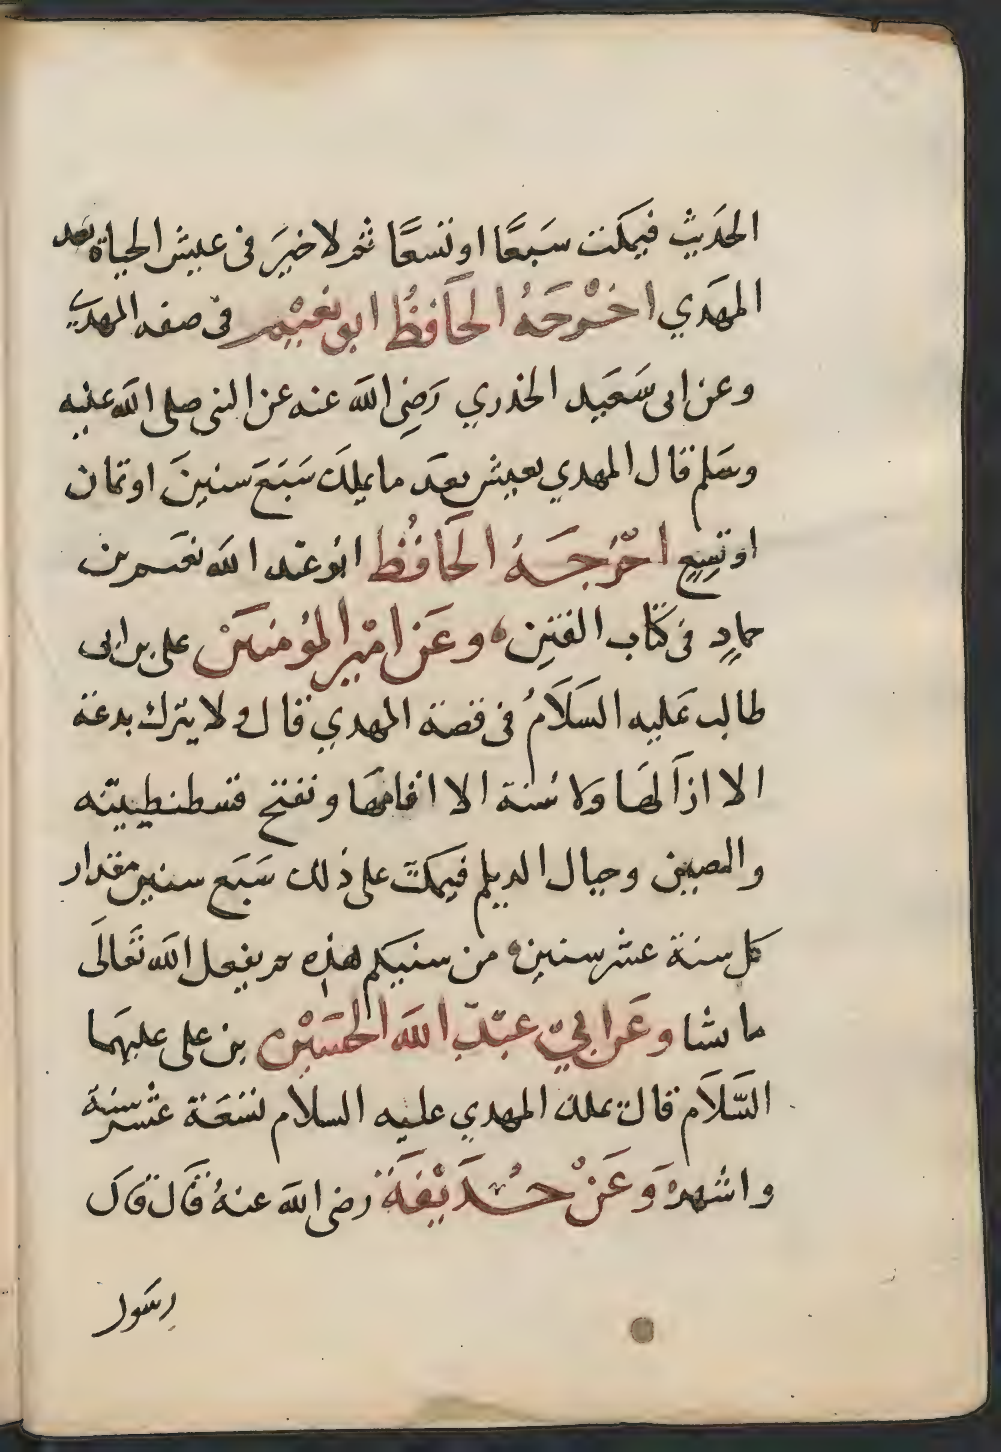 الحَديث فيمكث سَبعًا او تسعًا ثم لا خيَر فى عيش الحياة بعد
المهَدي اخْرجَهُ الحَافظُ ابو نعيْم فى صفه المهدي
وعن ابى سَعَيد الخدري رَضِى الله عنه عن النبى صلى الله عليه
وسَلم قال المهدي يعيش بعَد ما يملك سَبَعَ سنينَ او ثمان
او تسِعٍ اخْرجَهُ الحَافُظ ابو عبْد الله نعَيم بن
حمادٍ فى كتاب الفتَنِ وعَن امْير المؤمنَينْ على بن ابى
طالب عَليه السَلَامُ فى قصة المهدي قال ولا يترك بدعة
الا ازاَلهَا ولا سُنة الا اقامهَا وتفتح قسطنطينيه
والصين وجبال الديلم فيمكَث على ذلك سَبَع سنين مقدار
كل سنة عشر سنين من سنيكم هذه ثم يفعل الله تَعالَى
ما شا وعَن ابيْ عبّدِ اللَه الحَسَيْن بن على عليهَما
السَّلَام قال يملك المهدي عليه السلام تسَعَة عشْر سنة
واشهرً وَعَنْ حُذَيْفَةَ رضى الله عنهُ قَالَ قال
رسَول